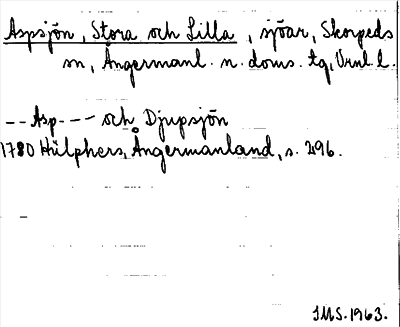 Aspsjön, Stora och Lilla, sjöar, Skorpeds
sn, Ångermanl. n. doms. tg, Vnl. l.
-- Asp --- och Djupsjön
1780 Hülphers, Ångermanland, s. 296.
IMS. 1963.